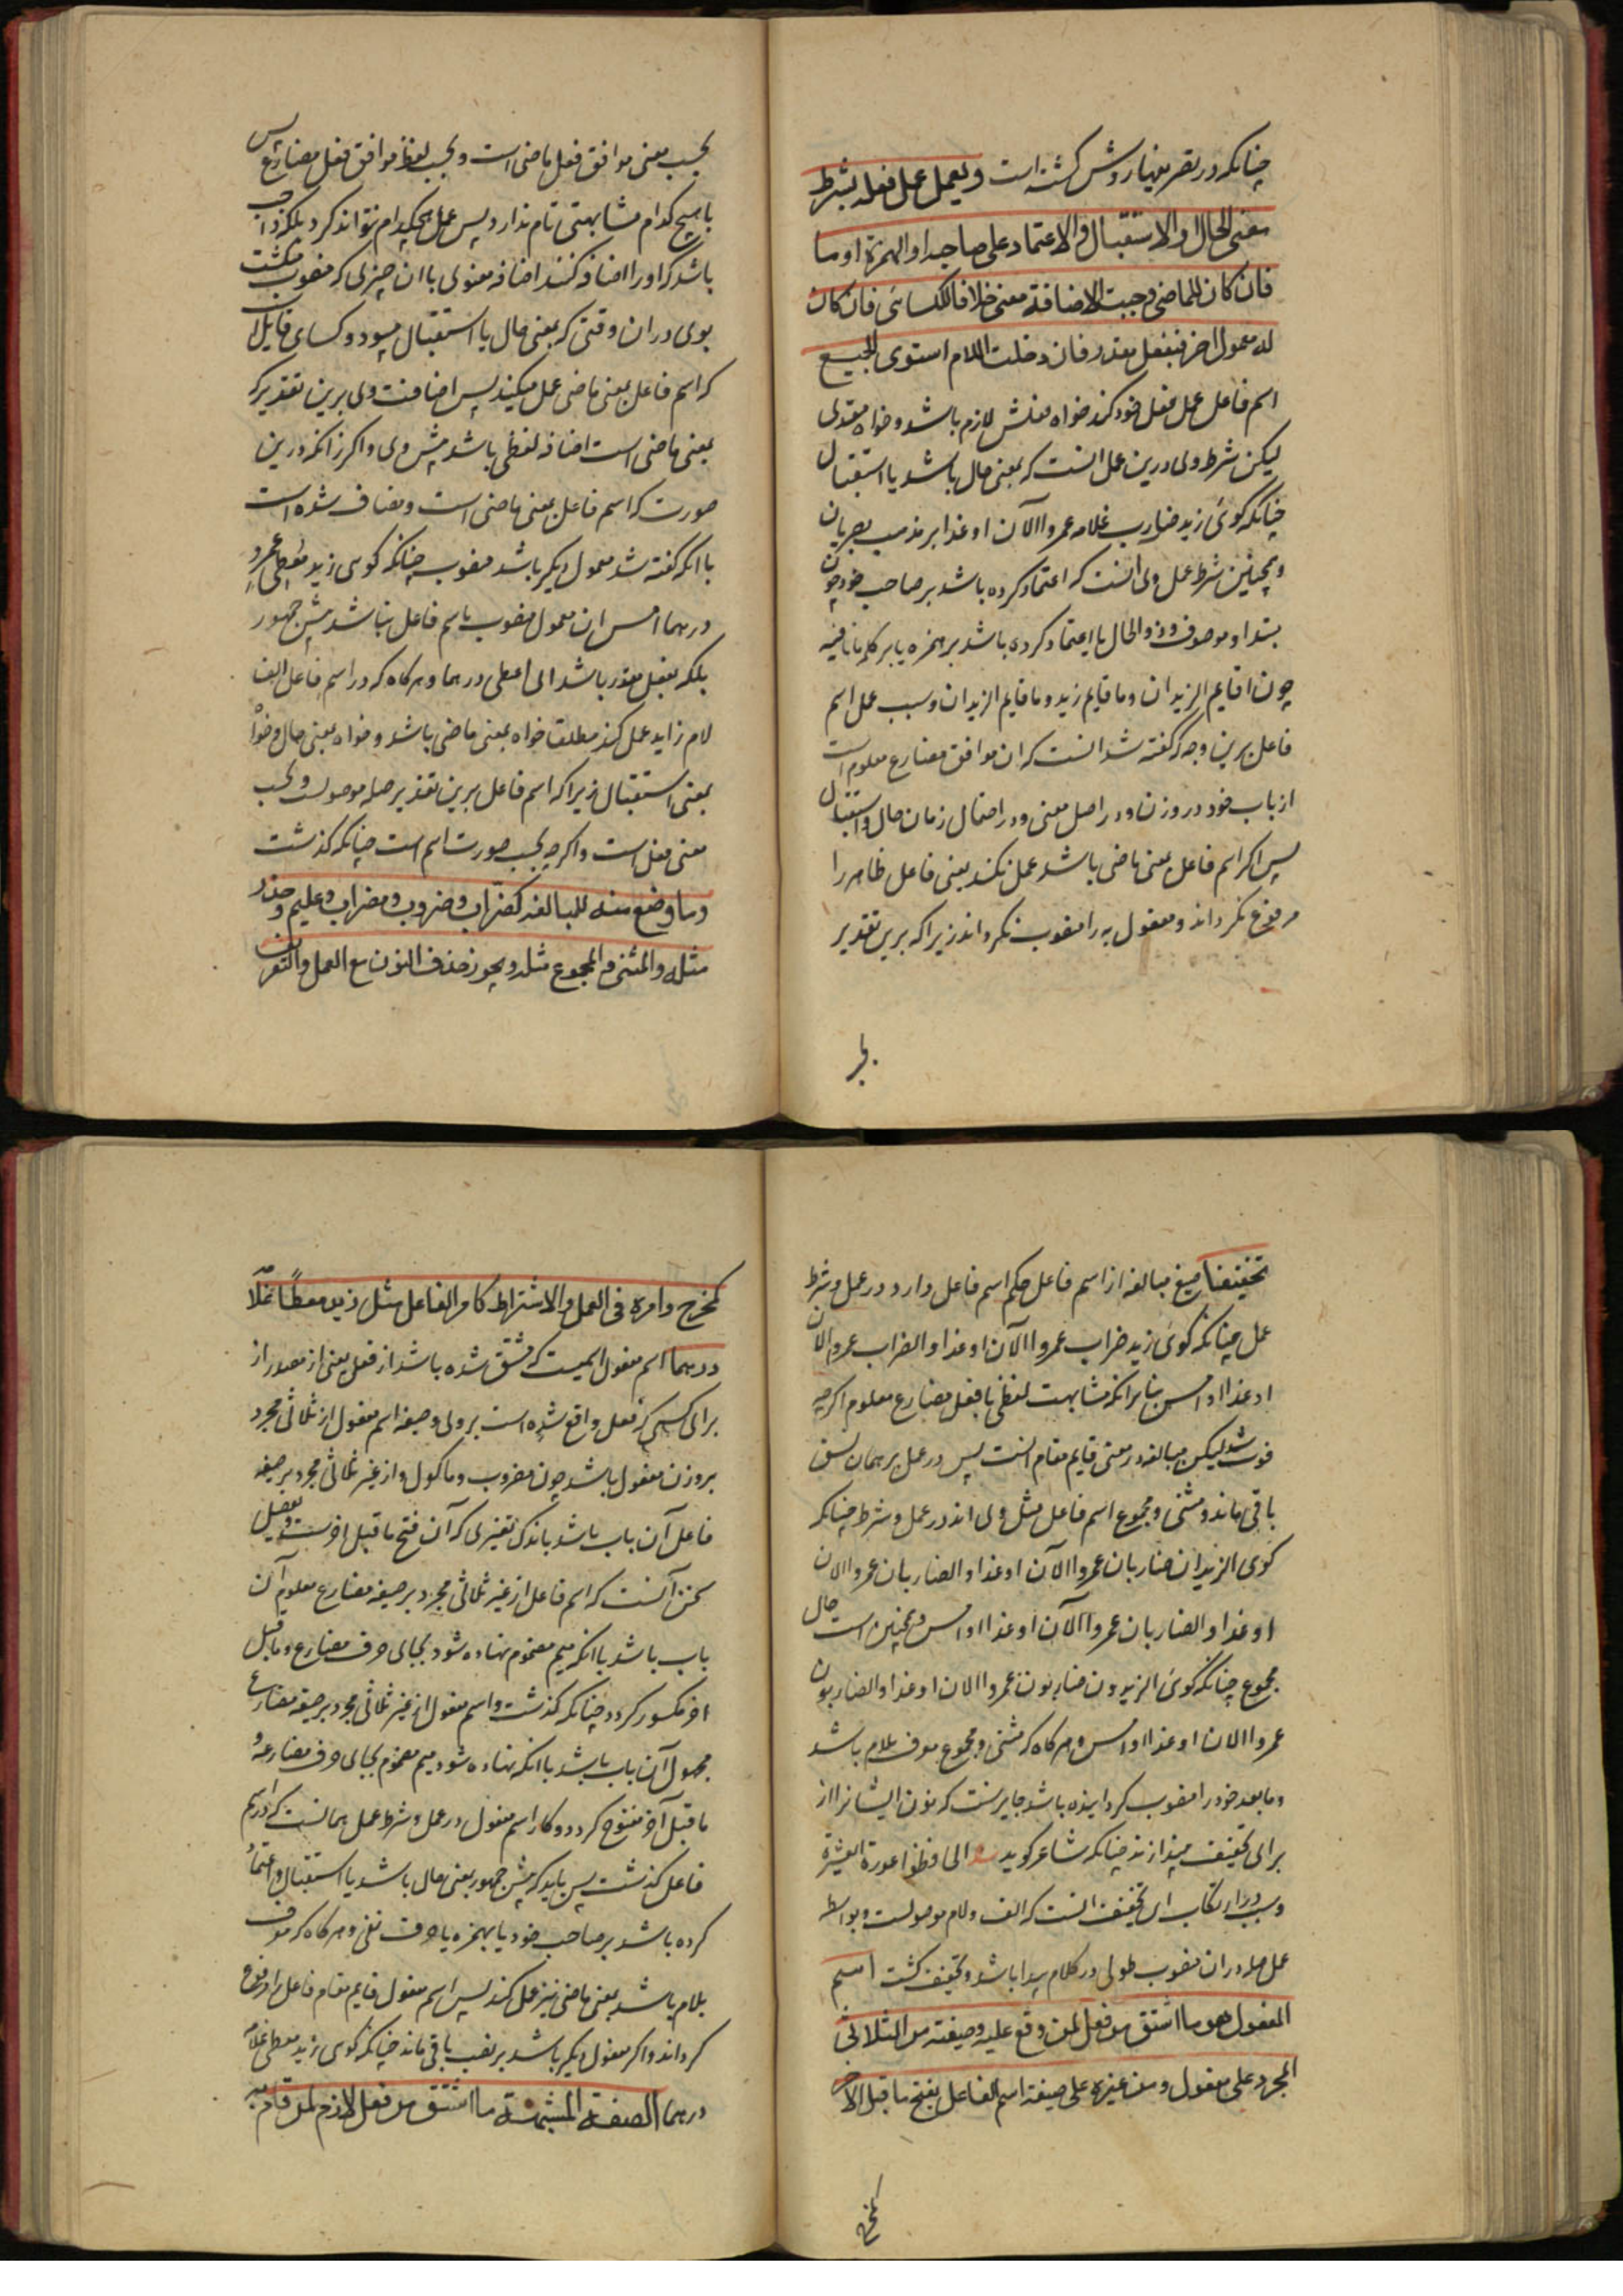 چنانکه در تصریفها روشن کشته است ویعمل عمل فعله بشرط
معنی الحال او الاستقبال والاعتماد علی صاحبه او الهمزة او ما
فان کان للماضی وجبت الاضافة معنی خلافا للکسائی فان کان
له معمول اخر فبفعل مقدر فان دخلت اللام استوی الجمیع
اسم فاعل عمل فعل خود کند خواه فعلش لازم باشد و خواه متعدی
لیکن شرط وی درین عمل انست که بمعنی حال باشد یا استقبال
چنانکه کوئی زید ضارب غلامه عمروا الآن او غدا بر مذهب بصریان
وهمچنین شرط عمل وی انست که اعتماد کرده باشد بر صاحب خود چون
مبتدا و موصوف و ذو الحال یا اعتماد کرده باشد بر همزه یا بر کلمه ما نافیه
چون اقایم الزیدان وما قایم زید وما قایم الزیدان وسبب عمل اسم
فاعل برین وجه که گفته شد انست که ان موافق مضارع معلوم است
از باب خود در وزن و در اصل معنی و در احتمال زمان حال واستقبال
پس اکر اسم فاعل بمعنی ماضی باشد عمل نکند یعنی فاعل ظاهر را
مرفوع نکرداند ومفعول به را منصوب نکرداند زیرا که برین تقدیر
بحسب معنی موافق فعل ماضی است وبحسب لفظ موافق فعل مضارع پس
با هیچ کدام مشابهتی تام ندارد پس عمل هیچکدام نتواند کرد بلکه واجب
باشد که او را اضافه کنند اضافه معنوی باان چیزی که منصوب میکشت
بوی دران وقتی که بمعنی حال یا استقبال میبود وکسائی قایل
که اسم فاعل بمعنی ماضی عمل میکند پس اضافت وی برین تقدیر که
بمعنی ماضی است اضافه لفظی باشد پیش وی واکر زانکه درین
صورت که اسم فاعل بمعنی ماضی است ومضاف شده است
باانکه گفته شد معمول دیکر باشد منصوب چنانکه کوئی زید معطی عمرو
درهما امس ان معمول منصوب باسم فاعل نباشد پیش جمهور
بلکه بفعل مقدر باشد ای اعطی درهما وهرکاه که در اسم فاعل الف
لام زاید عمل کند مطلقا خواه بمعنی ماضی باشد وخواه بمعنی حال وخواه
بمعنی استقبال زیرا که اسم فاعل برین تقدیر صله موصولست وبحسب
معنی فعل است واکرچه بحسب صورت اسم است چنانکه کذشت
وما وضع منه للمبالغة کضرّاب وضروب ومضراب وعلیم وحذر
مثله والمثنی والمجموع مثله ویجوز حذف النون مع العمل والتعریف
تخفیفا صیغ مبالغه از اسم فاعل حکم اسم فاعل دارد در عمل وشرط
عمل چنانکه کوئی زید ضراب عمروا الآن او غدا والضراب عمروا الآن
او غدا او امس بنا برانکه مشابهت لفظی با فعل مضارع معلوم اکرچه
فوت شد لیکن مبالغه در معنی قایم مقام انست پس در عمل بر همان نسق
باقی ماند ومثنی ومجموع اسم فاعل مثل وی اند در عمل وشرط چنانکه
کوئی الزیدان ضاربان عمروا الآن او غدا والضاربان عمروا الان
او غدا والضاربان عمروا الآن او غدا او امس وهمچنین است حال
مجموع چنانکه کوئی الزیدون ضاربون عمروا الان او غدا والضاربون
عمروا الان او غدا او امس وهرکاه که مثنی ومجموع معرف بلام باشد
وما بعد خود را منصوب کردانیده باشد جایز است که نون ایشانرا از
برای تخفیف بیندازند چنانکه شاعر کوید الحافظوا عورة العشیرة
وسبب در ارتکاب این تخفیف انست که الف ولام موصولست وبواسطه
عمل صله دران منصوب طولی در کلام پیدا باشد وتخفیف کشت اسم
المفعول هو ما اشتق من فعل لمن وقع علیه وصیغته من الثلاثی
المجرد علی مفعول ومن غیره علی صیغة اسم الفاعل بفتح ما قبل الآخر
کمخرج وامره فی العمل والاشتراط کامر الفاعل مثل زید معطًا غلامه
درهما اسم مفعول اسمیست که مشتق شده باشد از فعل یعنی از مصدر از
برای کسی که فعل واقع شده است بر وی وصیغه اسم مفعول از ثلاثی مجرد
بر وزن مفعول باشد چون مضروب وماکول واز غیر ثلاثی مجرد بر صیغه
فاعل آن باب باشد باندک تغیری که آن فتح ما قبل اخرست وتفصیل
سخن آنست که اسم فاعل از غیر ثلاثی مجرد بر صیغه مضارع معلوم آن
باب باشد باانکه میم مضموم نهاده شود بجای حرف مضارع وما قبل
اخر مکسور کردد چنانکه کذشت واسم مفعول از غیر ثلاثی مجرد بر صیغه مضارع
مجهول آن باب باشد باانکه نهاده شود میم مضموم بجای حرف مضارعة
ما قبل آخر مفتوح کردد وکار اسم مفعول در عمل وشرط عمل همانست که در اسم
فاعل کذشت پس باید که پیش جمهور بمعنی حال باشد یا استقبال واعتماد
کرده باشد بر صاحب خود یا بهمزه یا حرف نفی وهرکاه که معرف
بلام باشد بمعنی ماضی نیز عمل کند پس اسم مفعول قایم مقام فاعل را مرفوع
کرداند واکر مفعول دیکر باشد بر نصب باقی ماند چنانکه کوئی زید معطی غلامه
درهما الصفة المشبهة ما اشتق من فعل لازم لمن قام به